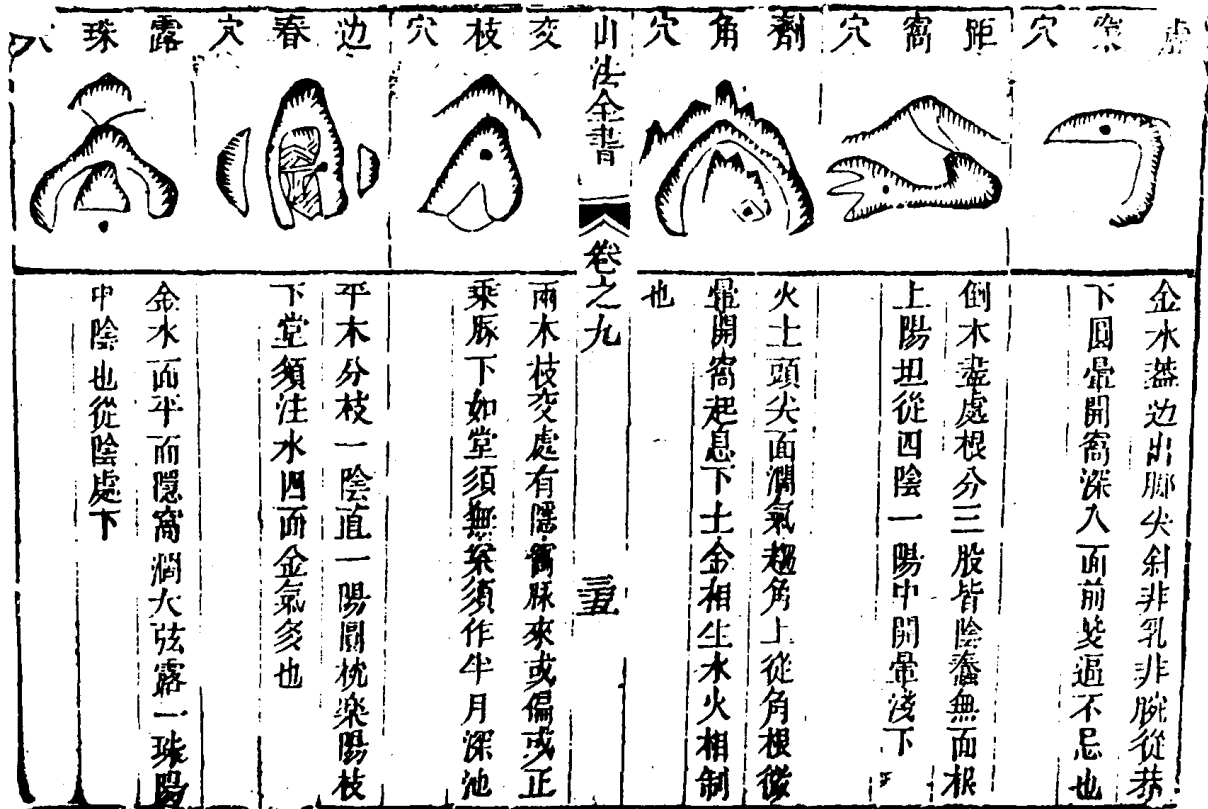 窩穴
金水蓋边出腳尖斜非乳非腕從恭
下圓暈開窩深入面前㢠逼不忌也
距窩穴
倒木盡處根分三股皆陰蠢無面根
上陽坦從四陰一陽中開暈淺下
劑角穴
火土頭尖面濶氣趨角上從角根微
暈開窩起息下土金相生水火相制
也
山法全書
卷之九
交枝穴
兩木枝交處有隱窩脉來或偏或正
乘脉下如堂須無案須作半月深池
边春穴
平木分枝一陰直一陽闊枕樂陽枝
下堂須注水四面金氣多也
露珠穴
金水面平而隱窩濶大弦露一珠陽
中陰也從陰處下